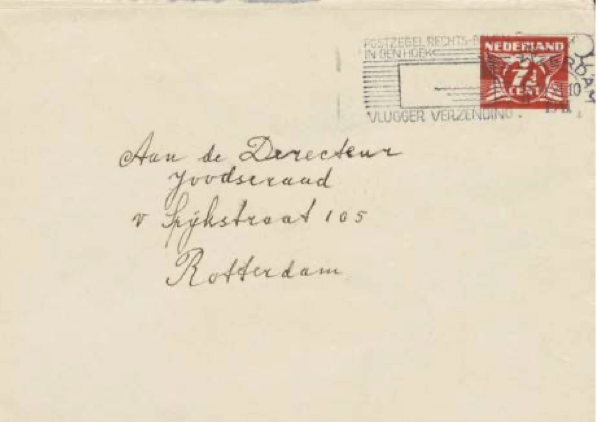 POSTZEGEL RECHTS-B
IN DEN HOEK
VLUGGER VERZENDING.
NEDERLAND
7½
CENT
10
Aan de Derecteur
Joodseraad
v Spijkstraat 105
Rotterdam